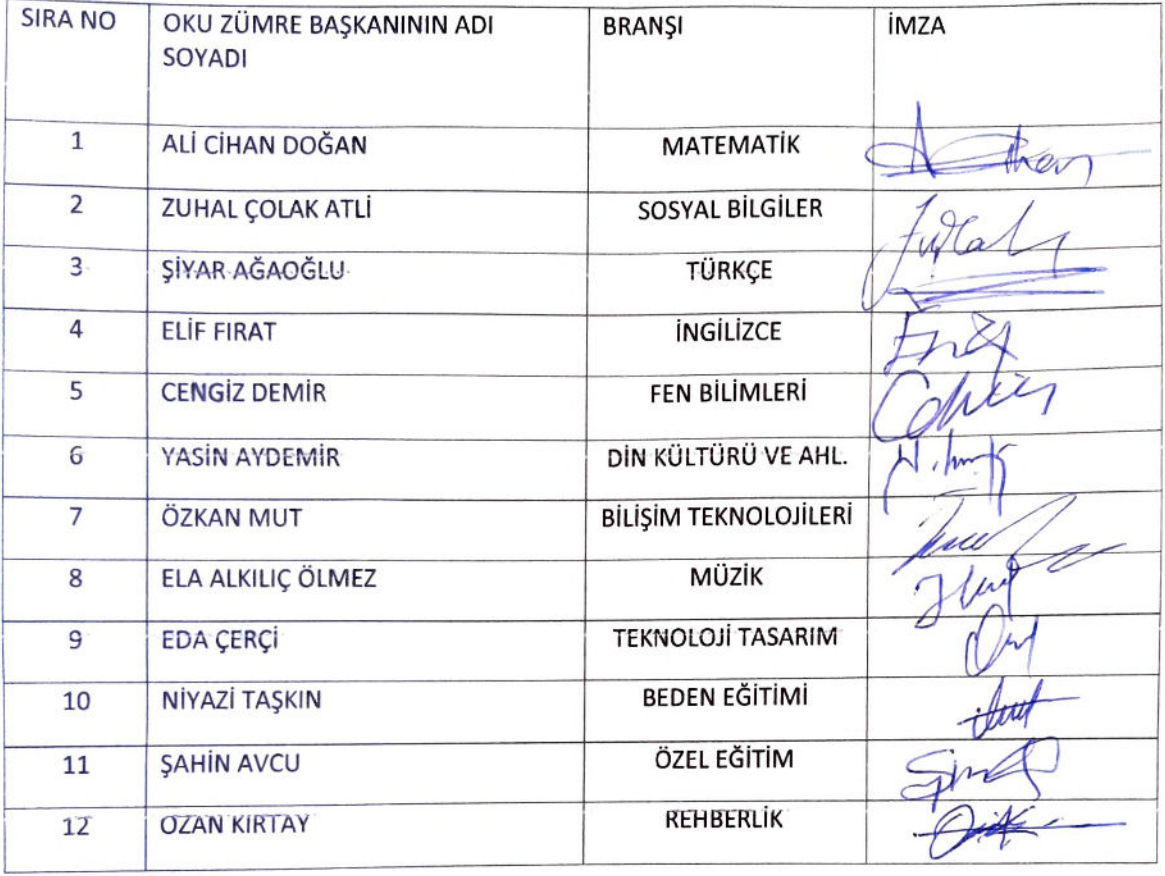 SIRA NO OKU ZÜMRE BAŞKANININ ADI SOYADI BRANŞI İMZA
1 ALİ CİHAN DOĞAN MATEMATİK
2 ZUHAL ÇOLAK ATLİ SOSYAL BİLGİLER
3 ŞİYAR AĞAOĞLU TÜRKÇE
4 ELİF FIRAT İNGİLİZCE
5 CENGİZ DEMİR FEN BİLİMLERİ
6 YASİN AYDEMİR DİN KÜLTÜRÜ VE AHL.
7 ÖZKAN MUT BİLİŞİM TEKNOLOJİLERİ
8 ELA ALKILIÇ ÖLMEZ MÜZİK
9 EDA ÇERÇİ TEKNOLOJİ TASARIM
10 NİYAZİ TAŞKIN BEDEN EĞİTİMİ
11 ŞAHİN AVCU ÖZEL EĞİTİM
12 OZAN KIRTAY REHBERLİK